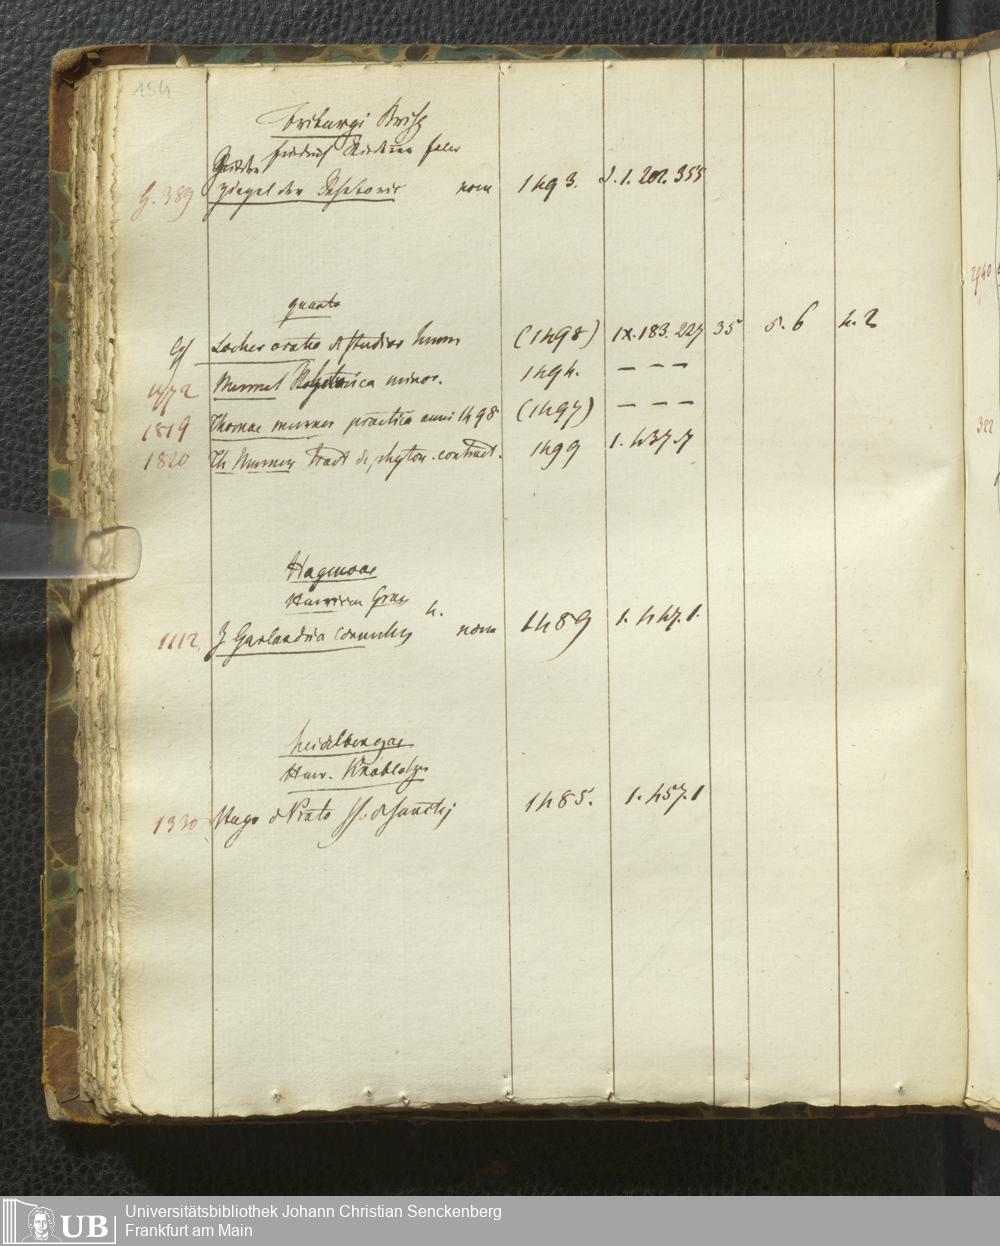 154
Friburgi Brisg
Friedrich
G. 389 Spiegel der nom 1493. 2. 1. 202. 355
quarto
Locher oratio de studiis human (1498) IX. 183. 227 35 5. 6 4. 2
Murner minor. 1494. — — —
1819 Thomae murner practica anni 1498 (1497) — — —
1820 Th Murner tract de phyton. contract. 1499 1. 437. 7
2940
322
Hagenoae
Henricum Gran
1112 J. Garlandria cornutus 4. nom 1489 1. 447. 1.
Heidelbergae
Henr. Knoblotzer
1330 Hugo de Prato 1485. 1. 457. 1
UB
Universitätsbibliothek Johann Christian Senckenberg
Frankfurt am Main